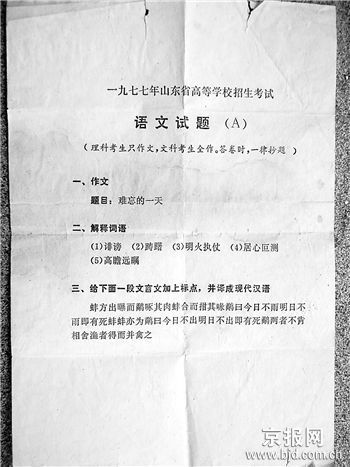 一九七七年山东省高等学校招生考试
语文试题 (A)
(理科考生只作文,文科考生全作。答卷时,一律抄题)
一、作文
题目:难忘的一天
二、解释词语
(1)诽谤 (2)踌躇 (3)明火执仗 (4)居心叵测
(5)高瞻远瞩
三、给下面一段文言文加上标点,并译成现代汉语
蚌方出曝而鹬啄其肉蚌合而箝其喙鹬曰今日不雨明日不
雨即有死蚌蚌亦为鹬曰今日不出明日不出即有死鹬两者不肯
相舍渔者得而并禽之
京报网
www.bjd.com.cn